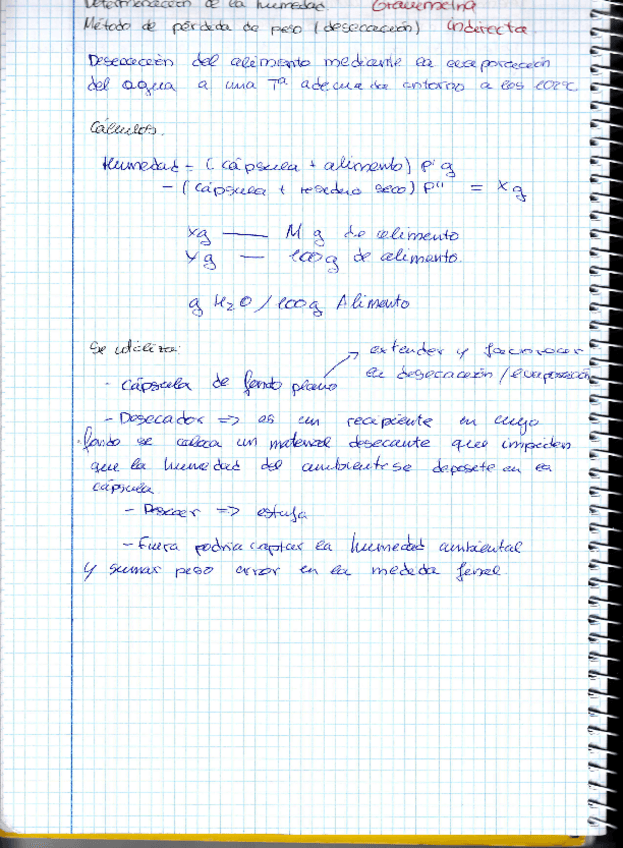 Determinación de la humedad. Gravimetría
Método de pérdida de peso (desecación) indirecta.
Desecación del alimento mediante la evaporación
del agua a una Tª adecuada entorno a los 102ºC.
Cálculos.
Humedad = (cápsula + alimento) P' g
- (cápsula + residuo seco) P'' = X g
Xg —— M g de alimento
Yg — 100g de alimento.
g H2O / 100g Alimento
Se utiliza:
- Cápsula de fondo plano → extender y favorecer
la desecación / evaporación
- Desecador => es un recipiente en cuyo
fondo se coloca un material desecante que impiden
que la humedad del ambiente se deposite en la
cápsula
- => estufa
- Fuera podría captar la humedad ambiental
y sumar peso error en la medida final